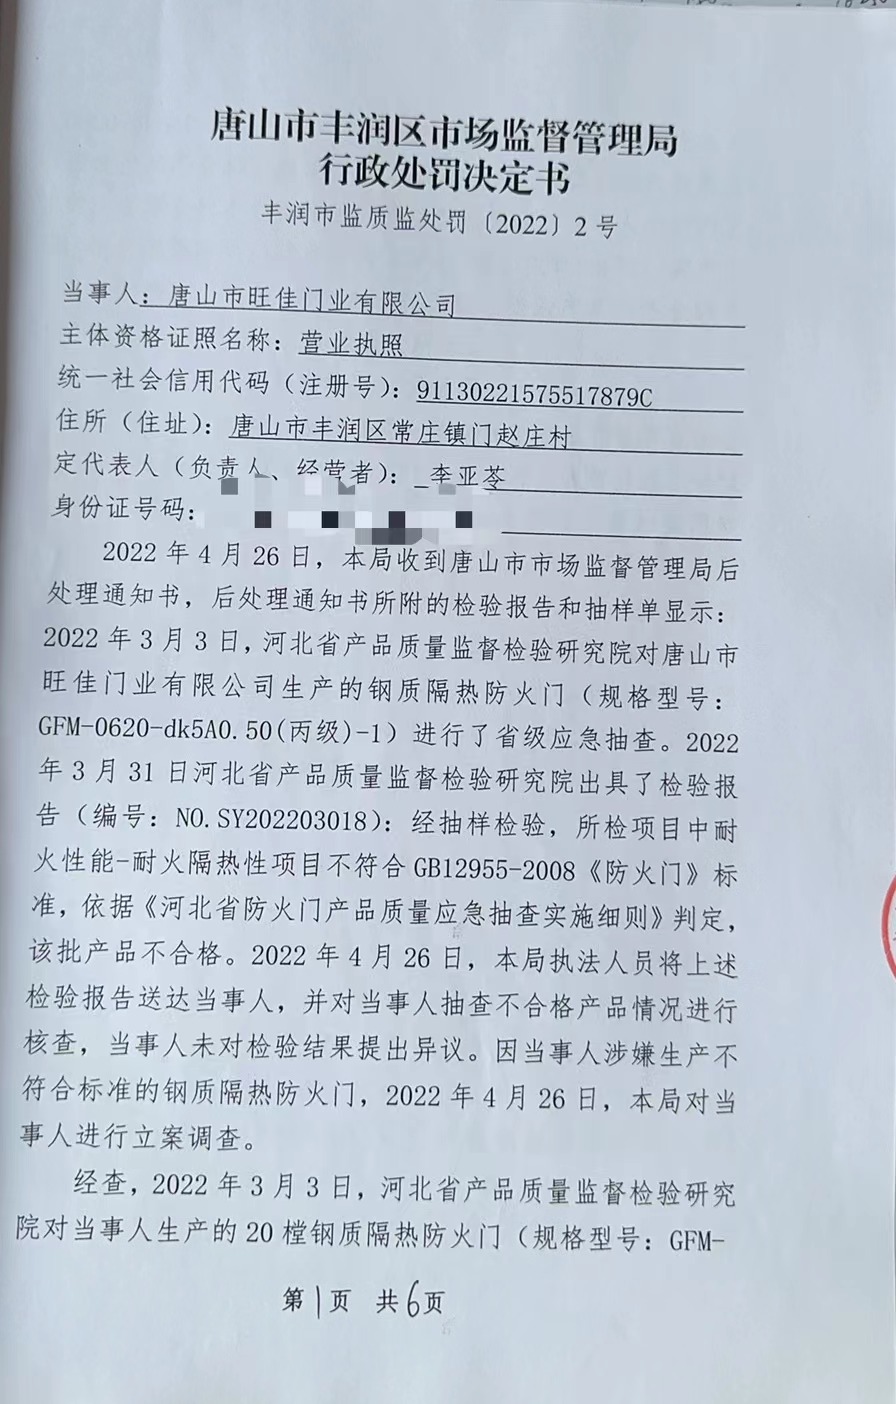 唐山市丰润区市场监督管理局
行政处罚决定书
丰润市监质监处罚〔2022〕2号
当事人：唐山市旺佳门业有限公司
主体资格证照名称：营业执照
统一社会信用代码（注册号）：91130221575517879C
住所（住址）：唐山市丰润区常庄镇门赵庄村
定代表人（负责人、经营者）：李亚苓
身份证号码：
2022年4月26日，本局收到唐山市市场监督管理局后
处理通知书，后处理通知书所附的检验报告和抽样单显示：
2022年3月3日，河北省产品质量监督检验研究院对唐山市
旺佳门业有限公司生产的钢质隔热防火门（规格型号：
GFM-0620-dk5A0.50(丙级)-1）进行了省级应急抽查。2022
年3月31日河北省产品质量监督检验研究院出具了检验报
告（编号：NO.SY202203018）：经抽样检验，所检项目中耐
火性能-耐火隔热性项目不符合GB12955-2008《防火门》标
准，依据《河北省防火门产品质量应急抽查实施细则》判定，
该批产品不合格。2022年4月26日，本局执法人员将上述
检验报告送达当事人，并对当事人抽查不合格产品情况进行
核查，当事人未对检验结果提出异议。因当事人涉嫌生产不
符合标准的钢质隔热防火门，2022年4月26日，本局对当
事人进行立案调查。
经查，2022年3月3日，河北省产品质量监督检验研究
院对当事人生产的20樘钢质隔热防火门（规格型号：GFM-
第1页 共6页